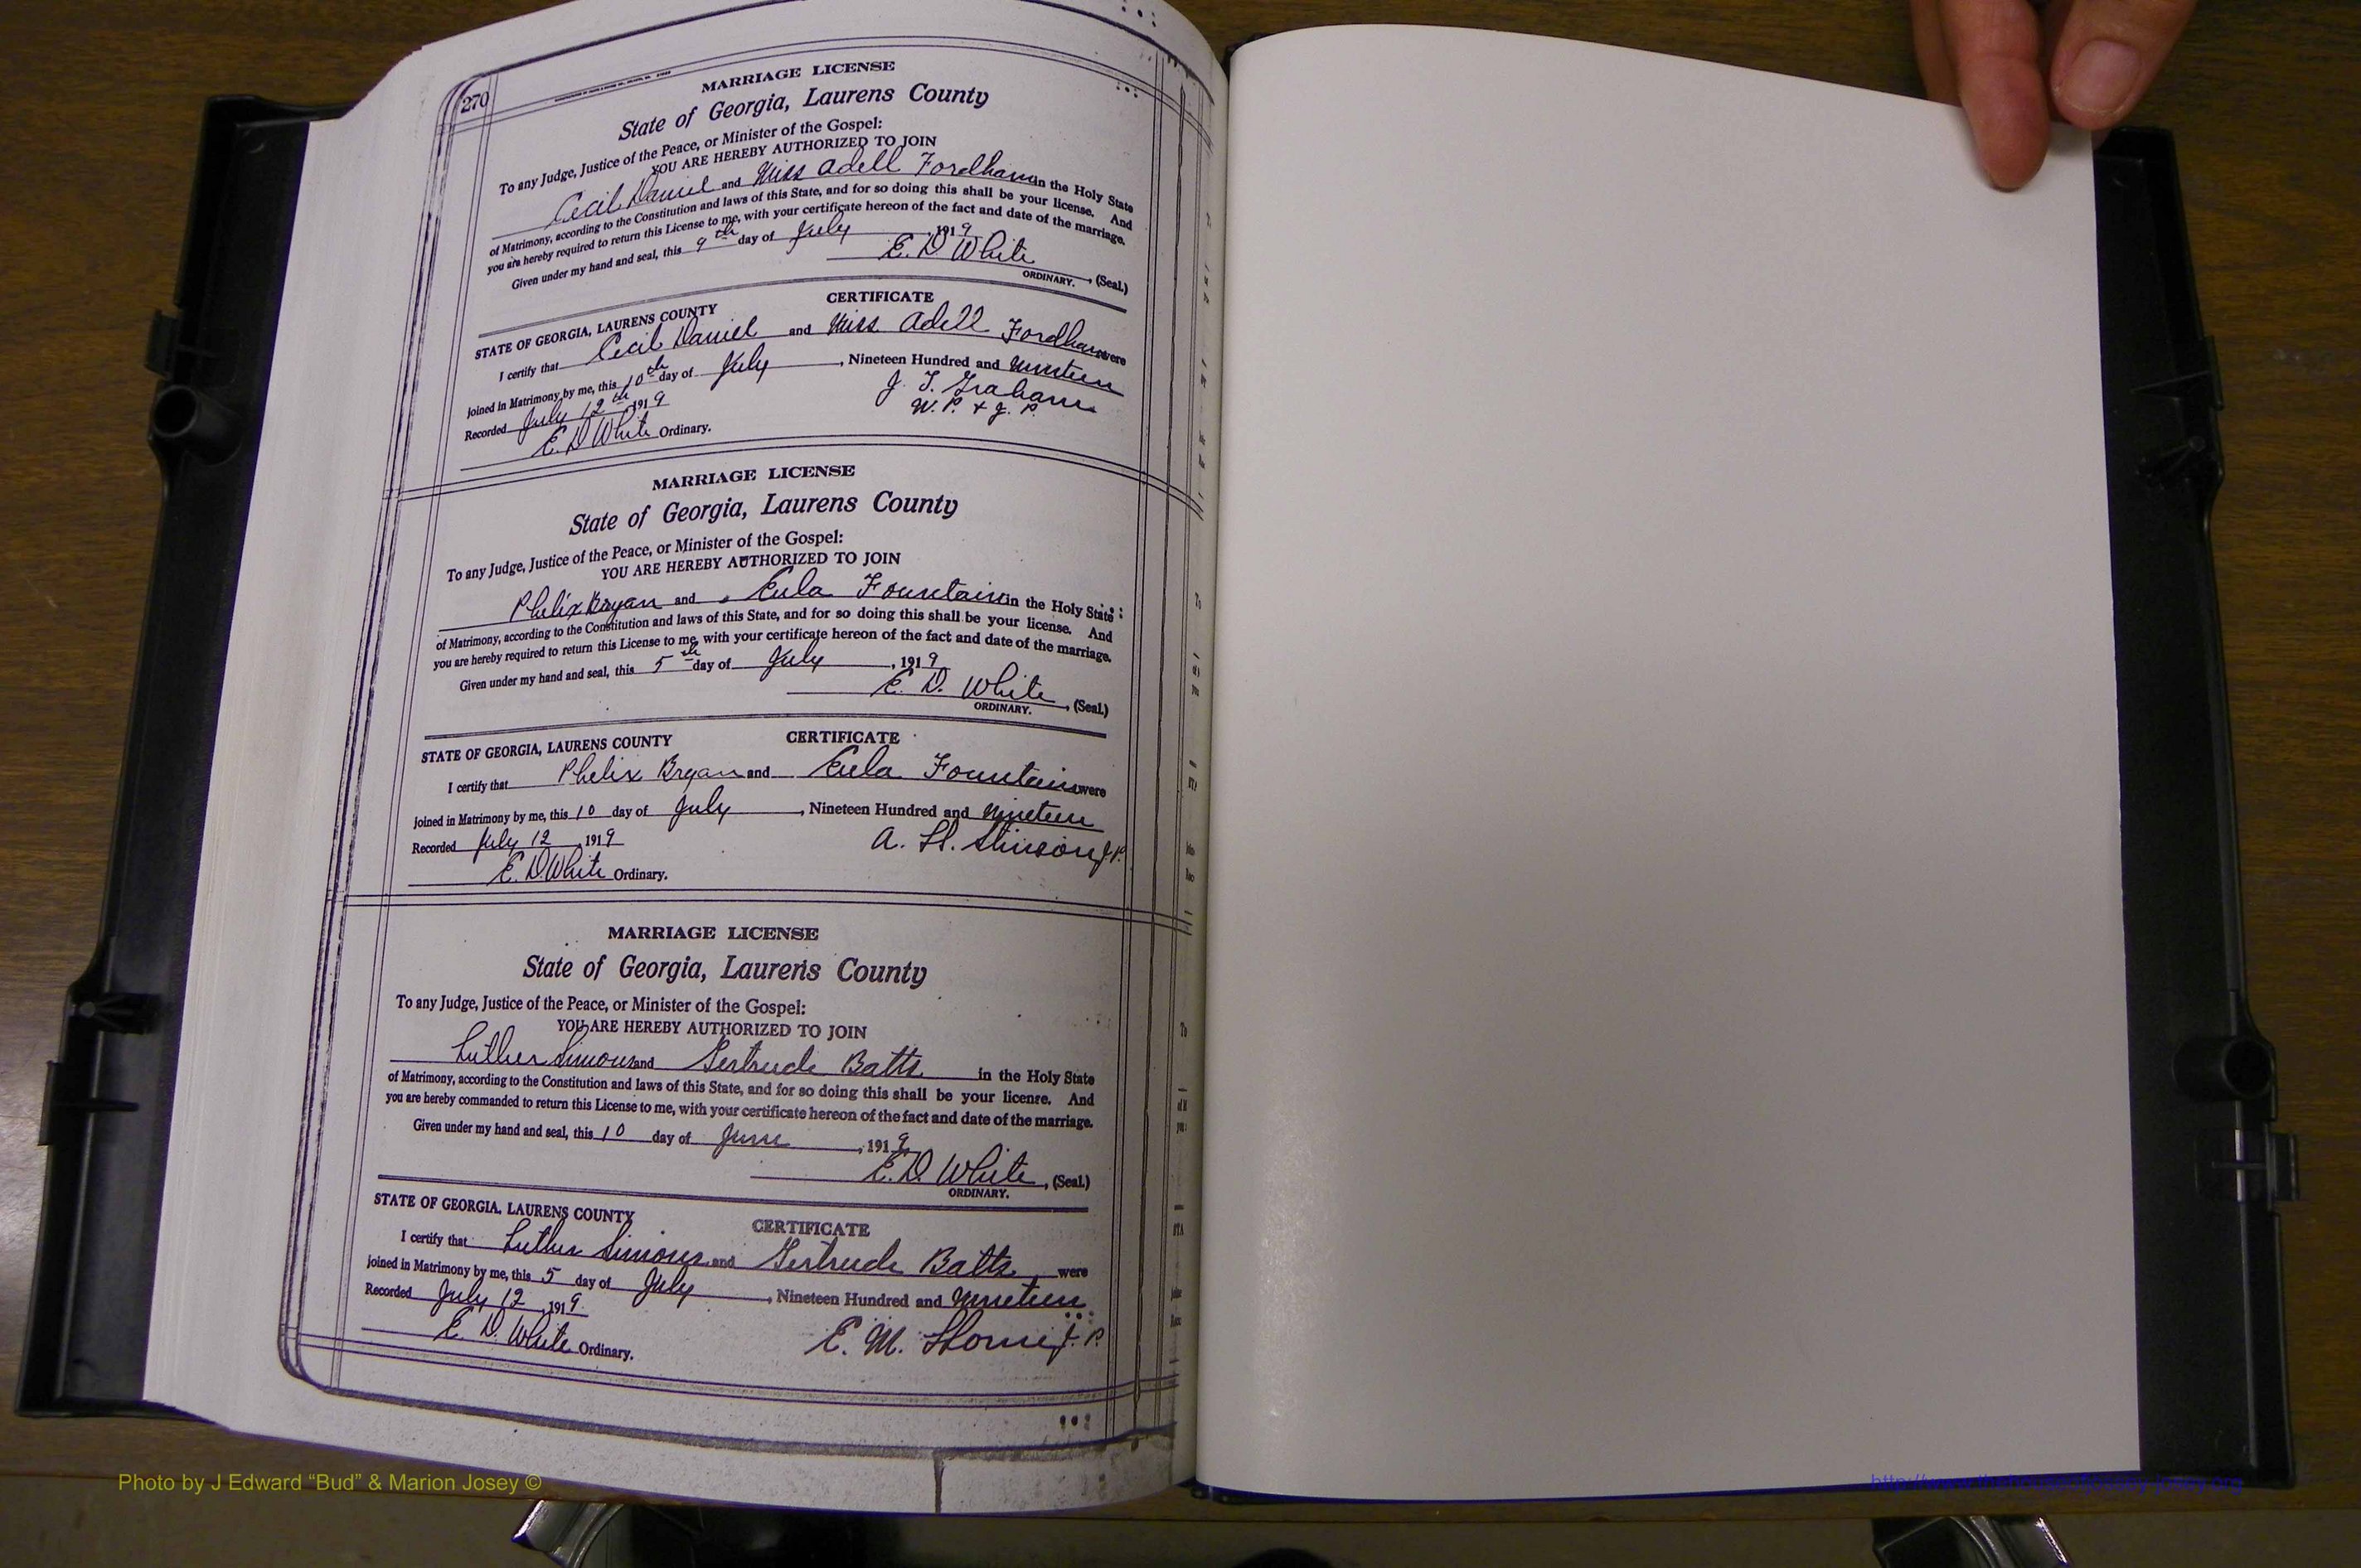 270
MARRIAGE LICENSE
State of Georgia, Laurens County
To any Judge, Justice of the Peace, or Minister of the Gospel:
YOU ARE HEREBY AUTHORIZED TO JOIN
Cecil Daniel and Miss Adell Fordham in the Holy State
of Matrimony, according to the Constitution and laws of this State, and for so doing this shall be your license. And
you are hereby required to return this License to me, with your certificate hereon of the fact and date of the marriage.
Given under my hand and seal, this 9th day of July, 1919
E. D. White, (Seal.)
ORDINARY.
CERTIFICATE
STATE OF GEORGIA, LAURENS COUNTY
I certify that Cecil Daniel and Miss Adell Fordham were
joined in Matrimony by me, this 10th day of July, Nineteen Hundred and Nineteen
Recorded July 12th 1919
J. T. Graham
W. P. & J. P.
E. D. White Ordinary.
MARRIAGE LICENSE
State of Georgia, Laurens County
To any Judge, Justice of the Peace, or Minister of the Gospel:
YOU ARE HEREBY AUTHORIZED TO JOIN
Phelix Bryan and Eula Fountain in the Holy State
of Matrimony, according to the Constitution and laws of this State, and for so doing this shall be your license. And
you are hereby required to return this License to me, with your certificate hereon of the fact and date of the marriage.
Given under my hand and seal, this 5th day of July, 1919
E. D. White, (Seal.)
ORDINARY.
STATE OF GEORGIA, LAURENS COUNTY CERTIFICATE
I certify that Phelix Bryan and Eula Fountain were
joined in Matrimony by me, this 10 day of July, Nineteen Hundred and Nineteen
Recorded July 12, 1919 A. H. Stinson J.P.
E. D. White Ordinary.
MARRIAGE LICENSE
State of Georgia, Laurens County
To any Judge, Justice of the Peace, or Minister of the Gospel:
YOU ARE HEREBY AUTHORIZED TO JOIN
Luther Simons and Gertrude Batts in the Holy State
of Matrimony, according to the Constitution and laws of this State, and for so doing this shall be your license. And
you are hereby commanded to return this License to me, with your certificate hereon of the fact and date of the marriage.
Given under my hand and seal, this 10 day of June, 1919
E. D. White, (Seal.)
ORDINARY.
STATE OF GEORGIA. LAURENS COUNTY CERTIFICATE
I certify that Luther Simons and Gertrude Batts were
joined in Matrimony by me, this 5 day of July, Nineteen Hundred and Nineteen
Recorded July 12, 1919.
E. D. White Ordinary. E. M. J. P.
Photo by J Edward “Bud” & Marion Josey ©